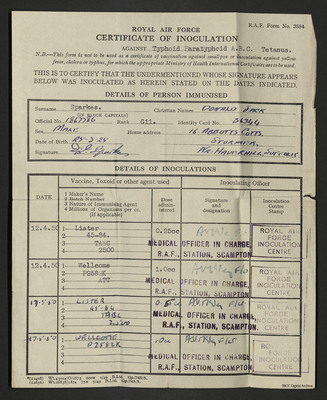 R.A.F. Form No. 3984
ROYAL AIR FORCE
CERTIFICATE OF INOCULATION
AGAINST Typhoid Paratyphoid A.B.C. Tetanus.
N.B.—This form is not to be used as a certificate of vaccination against small-pox or inoculation against yellow
fever, cholera or typhus, for which the appropriate Ministry of Health International Certificates are to be used.
THIS IS TO CERTIFY THAT THE UNDERMENTIONED WHOSE SIGNATURE APPEARS
BELOW WAS INOCULATED AS HEREIN STATED ON THE DATES INDICATED.
DETAILS OF PERSON IMMUNISED
Surname Sparkes. Christian Names DONALD JACK
(IN BLOCK CAPITALS)
Official No. 1867786 Rank G11. Identity Card No.
Sex MALE Home address 16 ABBOTTS COTTS.
Date of Birth 25-3-25 STURMER,
Signature Nr HAVERHILL SUFFOLK
DETAILS OF INOCULATIONS
Vaccine, Toxoid or other agent used Inoculating Officer
DATE
1 Maker's Name
2 Batch Number
3 Nature of Immunising Agent
4 Millions of Organisms per cc.
(If applicable)
Dose administered
Signature and designation
Inoculation Centre Stamp
12.4.50 1- Lister 0.25cc
2- 45-84.
3- TABC MEDICAL OFFICER IN CHARGE,
4- 2500 R.A.F., STATION, SCAMPTON
ROYAL AIR
FORCE
INOCULATION
CENTRE
12.4.50 1- Wellcome 1.0cc
2-
3- ATT MEDICAL OFFICER IN CHARGE,
4- R.A.F., STATION, SCAMPTON
ROYAL AIR
FORCE
INOCULATION
CENTRE
1- LISTER
2-
3- TABC MEDICAL OFFICER IN CHARGE,
4- R.A.F., STATION, SCAMPTON.
ROYAL AIR
FORCE
INOCULATION
CENTRE
1- WELLCOME
2-
3- MEDICAL OFFICER IN CHARGE,
4- R.A.F., STATION, SCAMPTON.
ROYAL AIR
FORCE
INOCULATION
CENTRE
IBCC Digital Archive